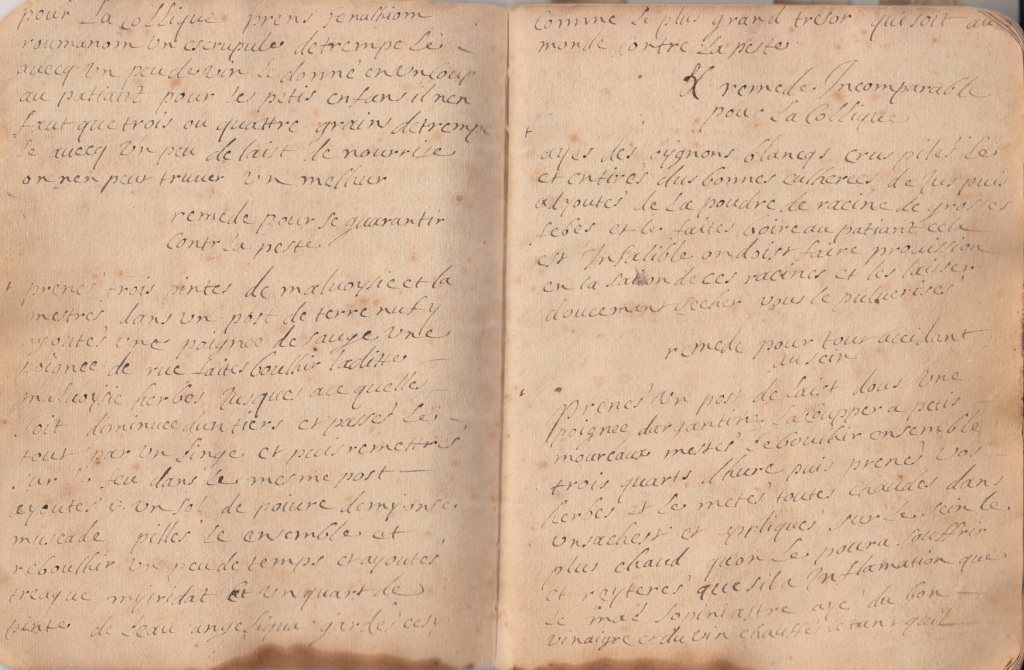 pour La Collique prens fenulhiom
roumanom un escrupule detrempe Le
avecq un peu de vin Le donne en un Coup
au patiant pour Les petis enfans il nen
faut que trois ou quattre grains detrempe
Le avecq un peu de laist de nourrise
on nen peut truver un mellur
remede pour se guarantir
contr La peste
prenes trois pintes de maluoysie et la
mestres dans un post de terre nuf y
ajoutés une poignee de sauge une
poignee de rue faites boulhir laditte
maluoysie herbes Jusques ace quelles
soit diminuee dun tiers et passes Le
tout par un linge et puis remettres
sur le feu dans le mesme post
ayoutes y un sol de poivre demy onse
muscade pilles Le ensemble et
reboulhir un peu de temps et ayoutes
treaque mytridat et un quart de
pinte de Leau angeliqua gardes cesy
Comme Le plus grand tresor qui soit au
monde Contre La peste
remede Incomparable
pour La Collique
ayes des oygnons blancqs crus piles Le
et entires dus bonnes culherees de Jus puis
adyoutes de La poudre de racine de grosses
febes et le faites boire au patiant cela
est Infalible on doist faire provission
en la saison de ces racines et les laisser
doucement secher vous le pulverises
remede pour tout accidant
au sein
Prenes un post de laist dous une
poignee dargantine La Coupper a petis
mourceaux mestes Le boulhir ensemble
trois quarts dhure puis prenes vos
herbes et Le metes toutes chaudes dans
un sachest et appliques sur Le sein le
plus chaud quon Le poura souffrir
et reyteres que sil a Inflamation que
Le mal sopiniastre ayes du bon
vinaigre et du vin chauffes